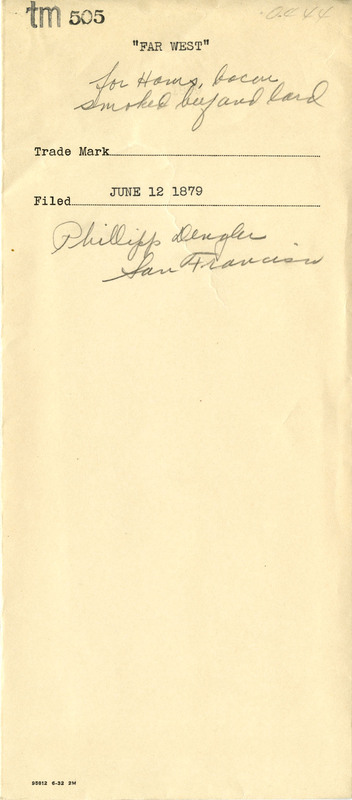 tm 505
"FAR WEST"
for Hams, bacon
smoked beef and lard
Trade Mark
JUNE 12 1879
Filed
Phillipp Dengler
San Francisco
95612 6-32 2M